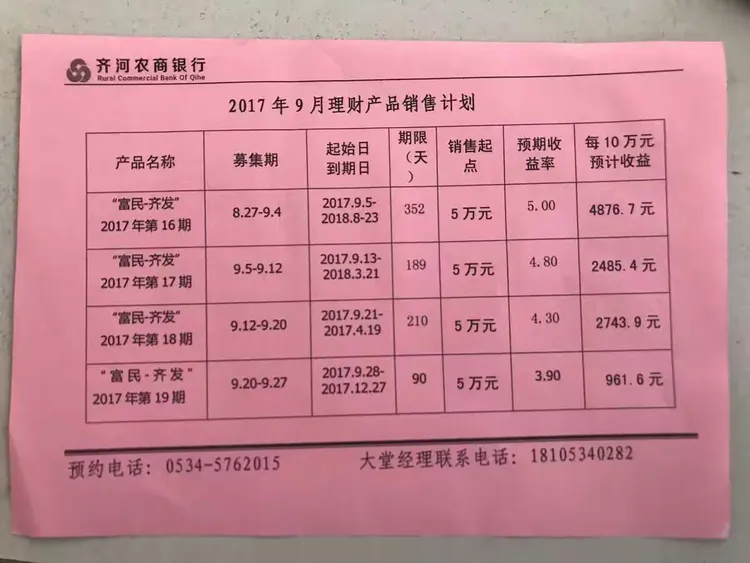 齐河农商银行
Rural Commercial Bank Of Qihe
2017年9月理财产品销售计划
产品名称 募集期 起始日 到期日 期限（天） 销售起点 预期收益率 每10万元预计收益
"富民-齐发" 2017年第16期 8.27-9.4 2017.9.5-2018.8-23 352 5万元 5.00 4876.7元
"富民-齐发" 2017年第17期 9.5-9.12 2017.9.13-2018.3.21 189 5万元 4.80 2485.4元
"富民-齐发" 2017年第18期 9.12-9.20 2017.9.21-2017.4.19 210 5万元 4.30 2743.9元
"富民-齐发" 2017年第19期 9.20-9.27 2017.9.28-2017.12.27 90 5万元 3.90 961.6元
预约电话：0534-5762015 大堂经理联系电话：18105340282